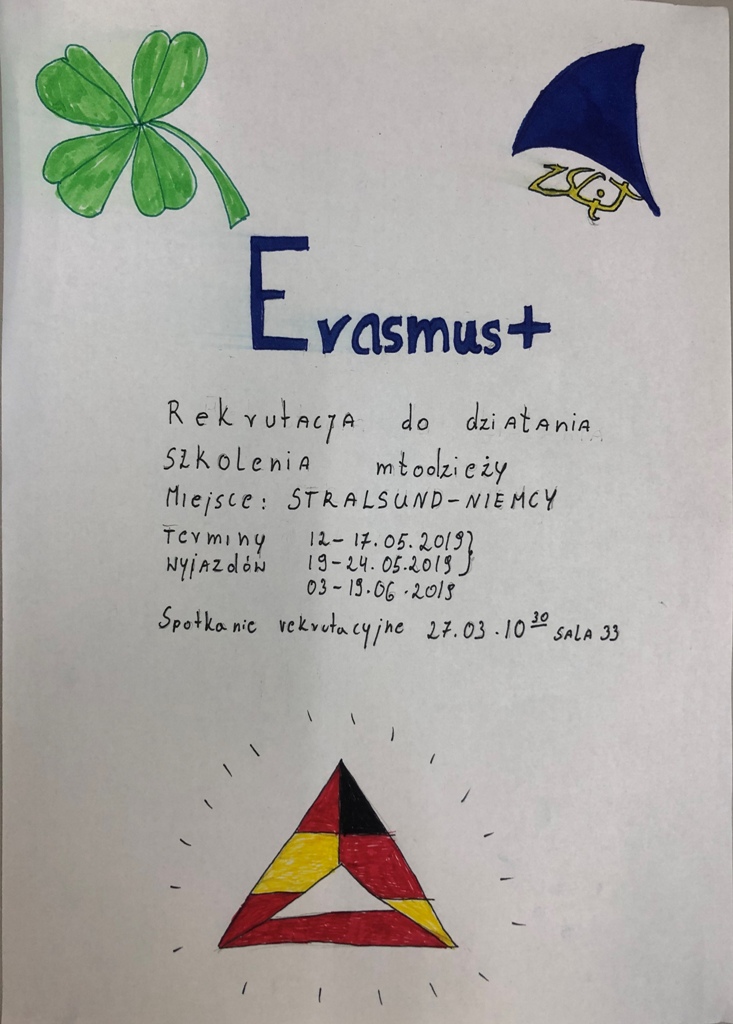 ZSGiT
Erasmus+
Rekrutacja do działania
szkolenia młodzieży
Miejsce: STRALSUND-NIEMCY
Terminy 12-17.05.2019}
wyjazdów 19-24.05.2019}
03-19.06.2019
Spotkanie rekrutacyjne 27.03.10³⁰ SALA 33